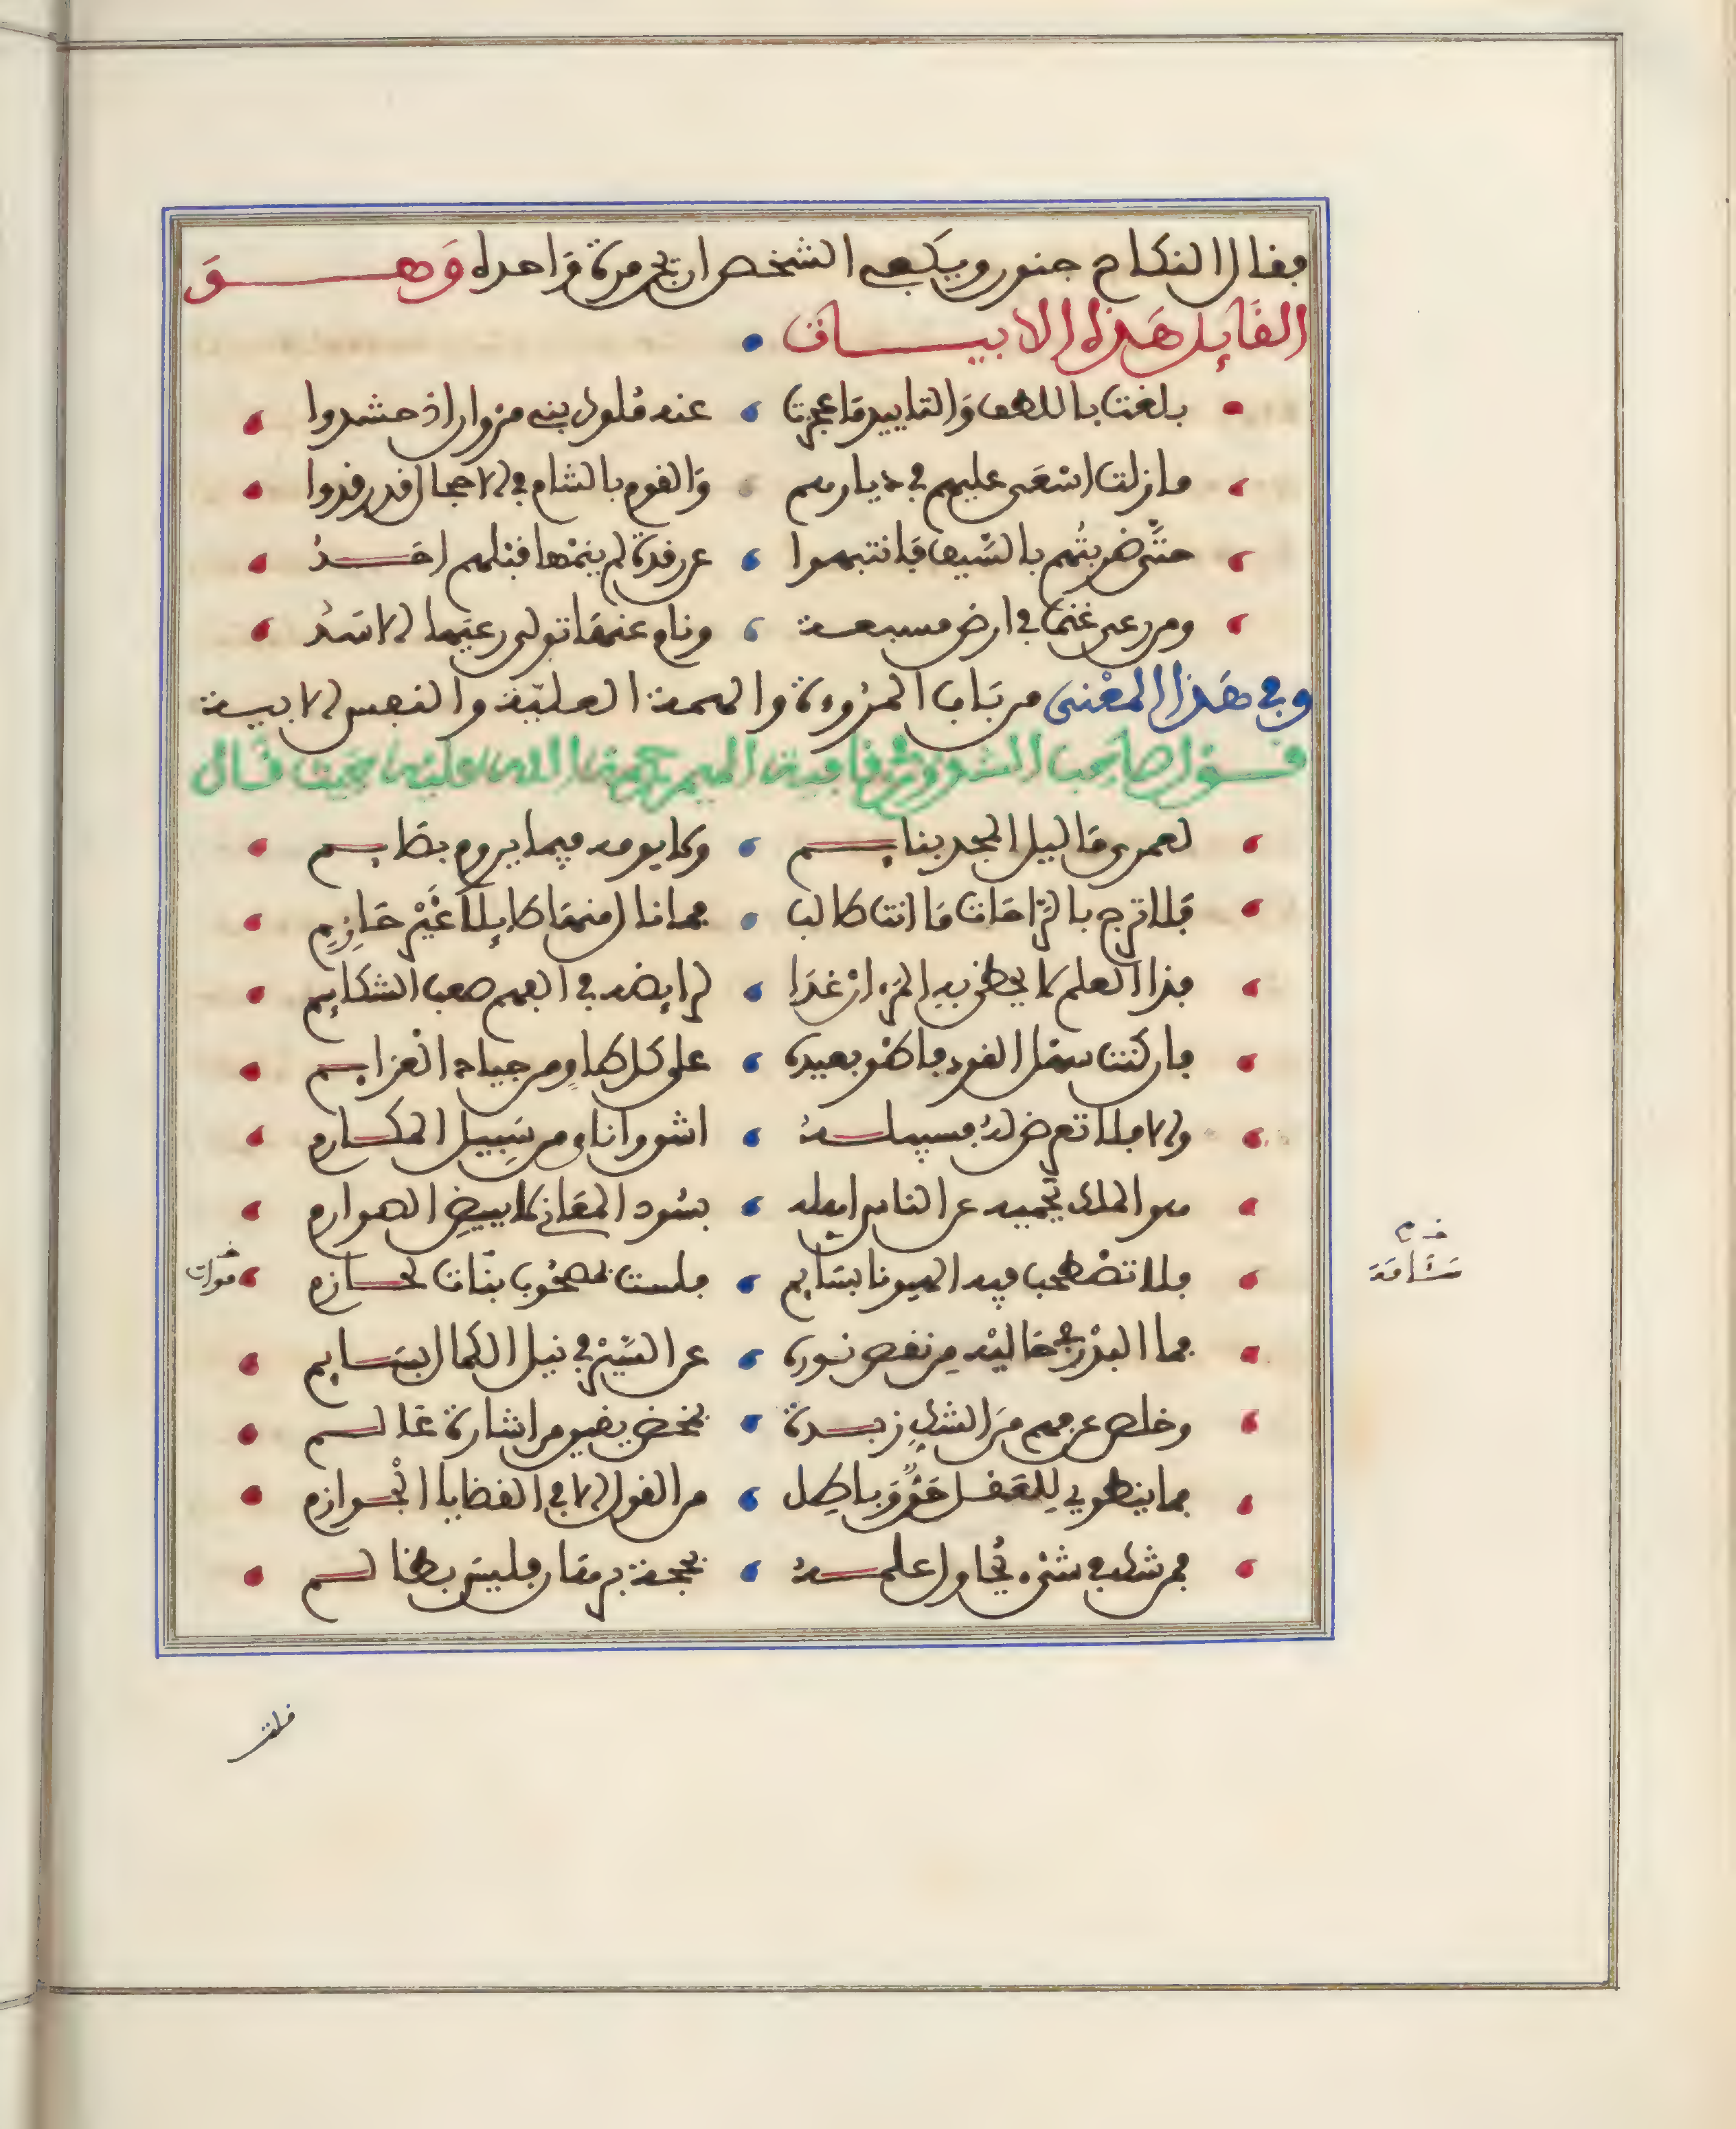 فقال النكاح جنون ويكفي الشخص ان يجن مرة واحدة وهو
القائل هذه الابيات
بلغت باللطف والتاييد ما عجزت عنه ملوك بني مروان اذ حشدوا
ما زلت اسعى عليهم في ديارهم والقوم بالشام في الاحجال قد رقدوا
حتى ضربتهم بالسيف فانتبهوا عن رقدة لم ينمها قبلهم احد
ومن رعى غنما في ارض مسبعة ونام عنها تولى رعيها الاسد
وفي هذا المعنى من باب المروءة والهمة العلية والنفس الابية
قول صاحب الشذور في قافية الميم رحمة الله عليه حيث قال
لعمرى ما ليل المجد بنايم ولا يومه فيما يروم بطايم
فلا ترج بالراحات ما انت طالب فما نال منها طايلا غير حازم
فذا العلم لا يحظى به المرء ان غدا لرايضه في الفهم صعب الشكايم
فان كنت سهل القود فاطو بعيده على كل طاو من جياد العزايم
والا فلا تعرض له فسبيله اشق واناى من سبيل المكارم
هو الملك يحميه عن الناس اهله بسود المعاني لا ببيض الصوارم
فلا تصطحب فيه الهيونا بسايم فلست بمصحوب بنات لحازم
فما البدر في حاليه من نقص نوره عن السير في نيل الكمال بسايم
وخلص عن فهم من الشك زبدة بمخض يقين من اشارة عالم
فما ينطوي للعقل حق وباطل من القول الا في القضايا الجوازم
فمن شك في شيء يحاول علمه بحجة برهان فليس بظالم
خ م
سئامة
خ موات
قلت